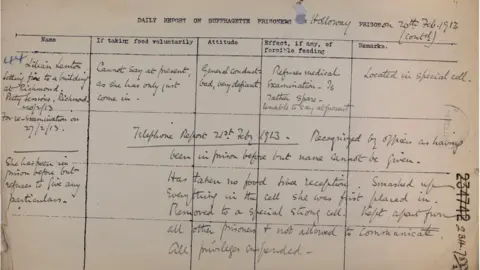 DAILY REPORT ON SUFFRAGETTE PRISONERS Holloway PRISON on 20th Feb. 1913
(contd)
Name
If taking food voluntarily
Attitude
Effect, if any, of forcible feeding
Remarks.
44 Lilian Lenton
setting fire to a building
at Richmond.
Petty Sessions, Richmond
20/2/13
For re-examination on
27/2/13.
Cannot say at present,
as she has only just
come in.
General conduct
bad, very defiant
Refuses medical
examination. Is
rather spare.
Unable to say at present
Located in special cell.
Telephone Report 21st Feby 1913. Recognized by officers as having
been in prison before but name cannot be given.
She has been in
prison before but
refuses to give any
particulars.
Has taken no food since reception. Smashed up
everything in the cell she was first placed in.
Removed to a special strong cell. Kept apart from
all other prisoners & not allowed to communicate.
All privileges suspended.
234742